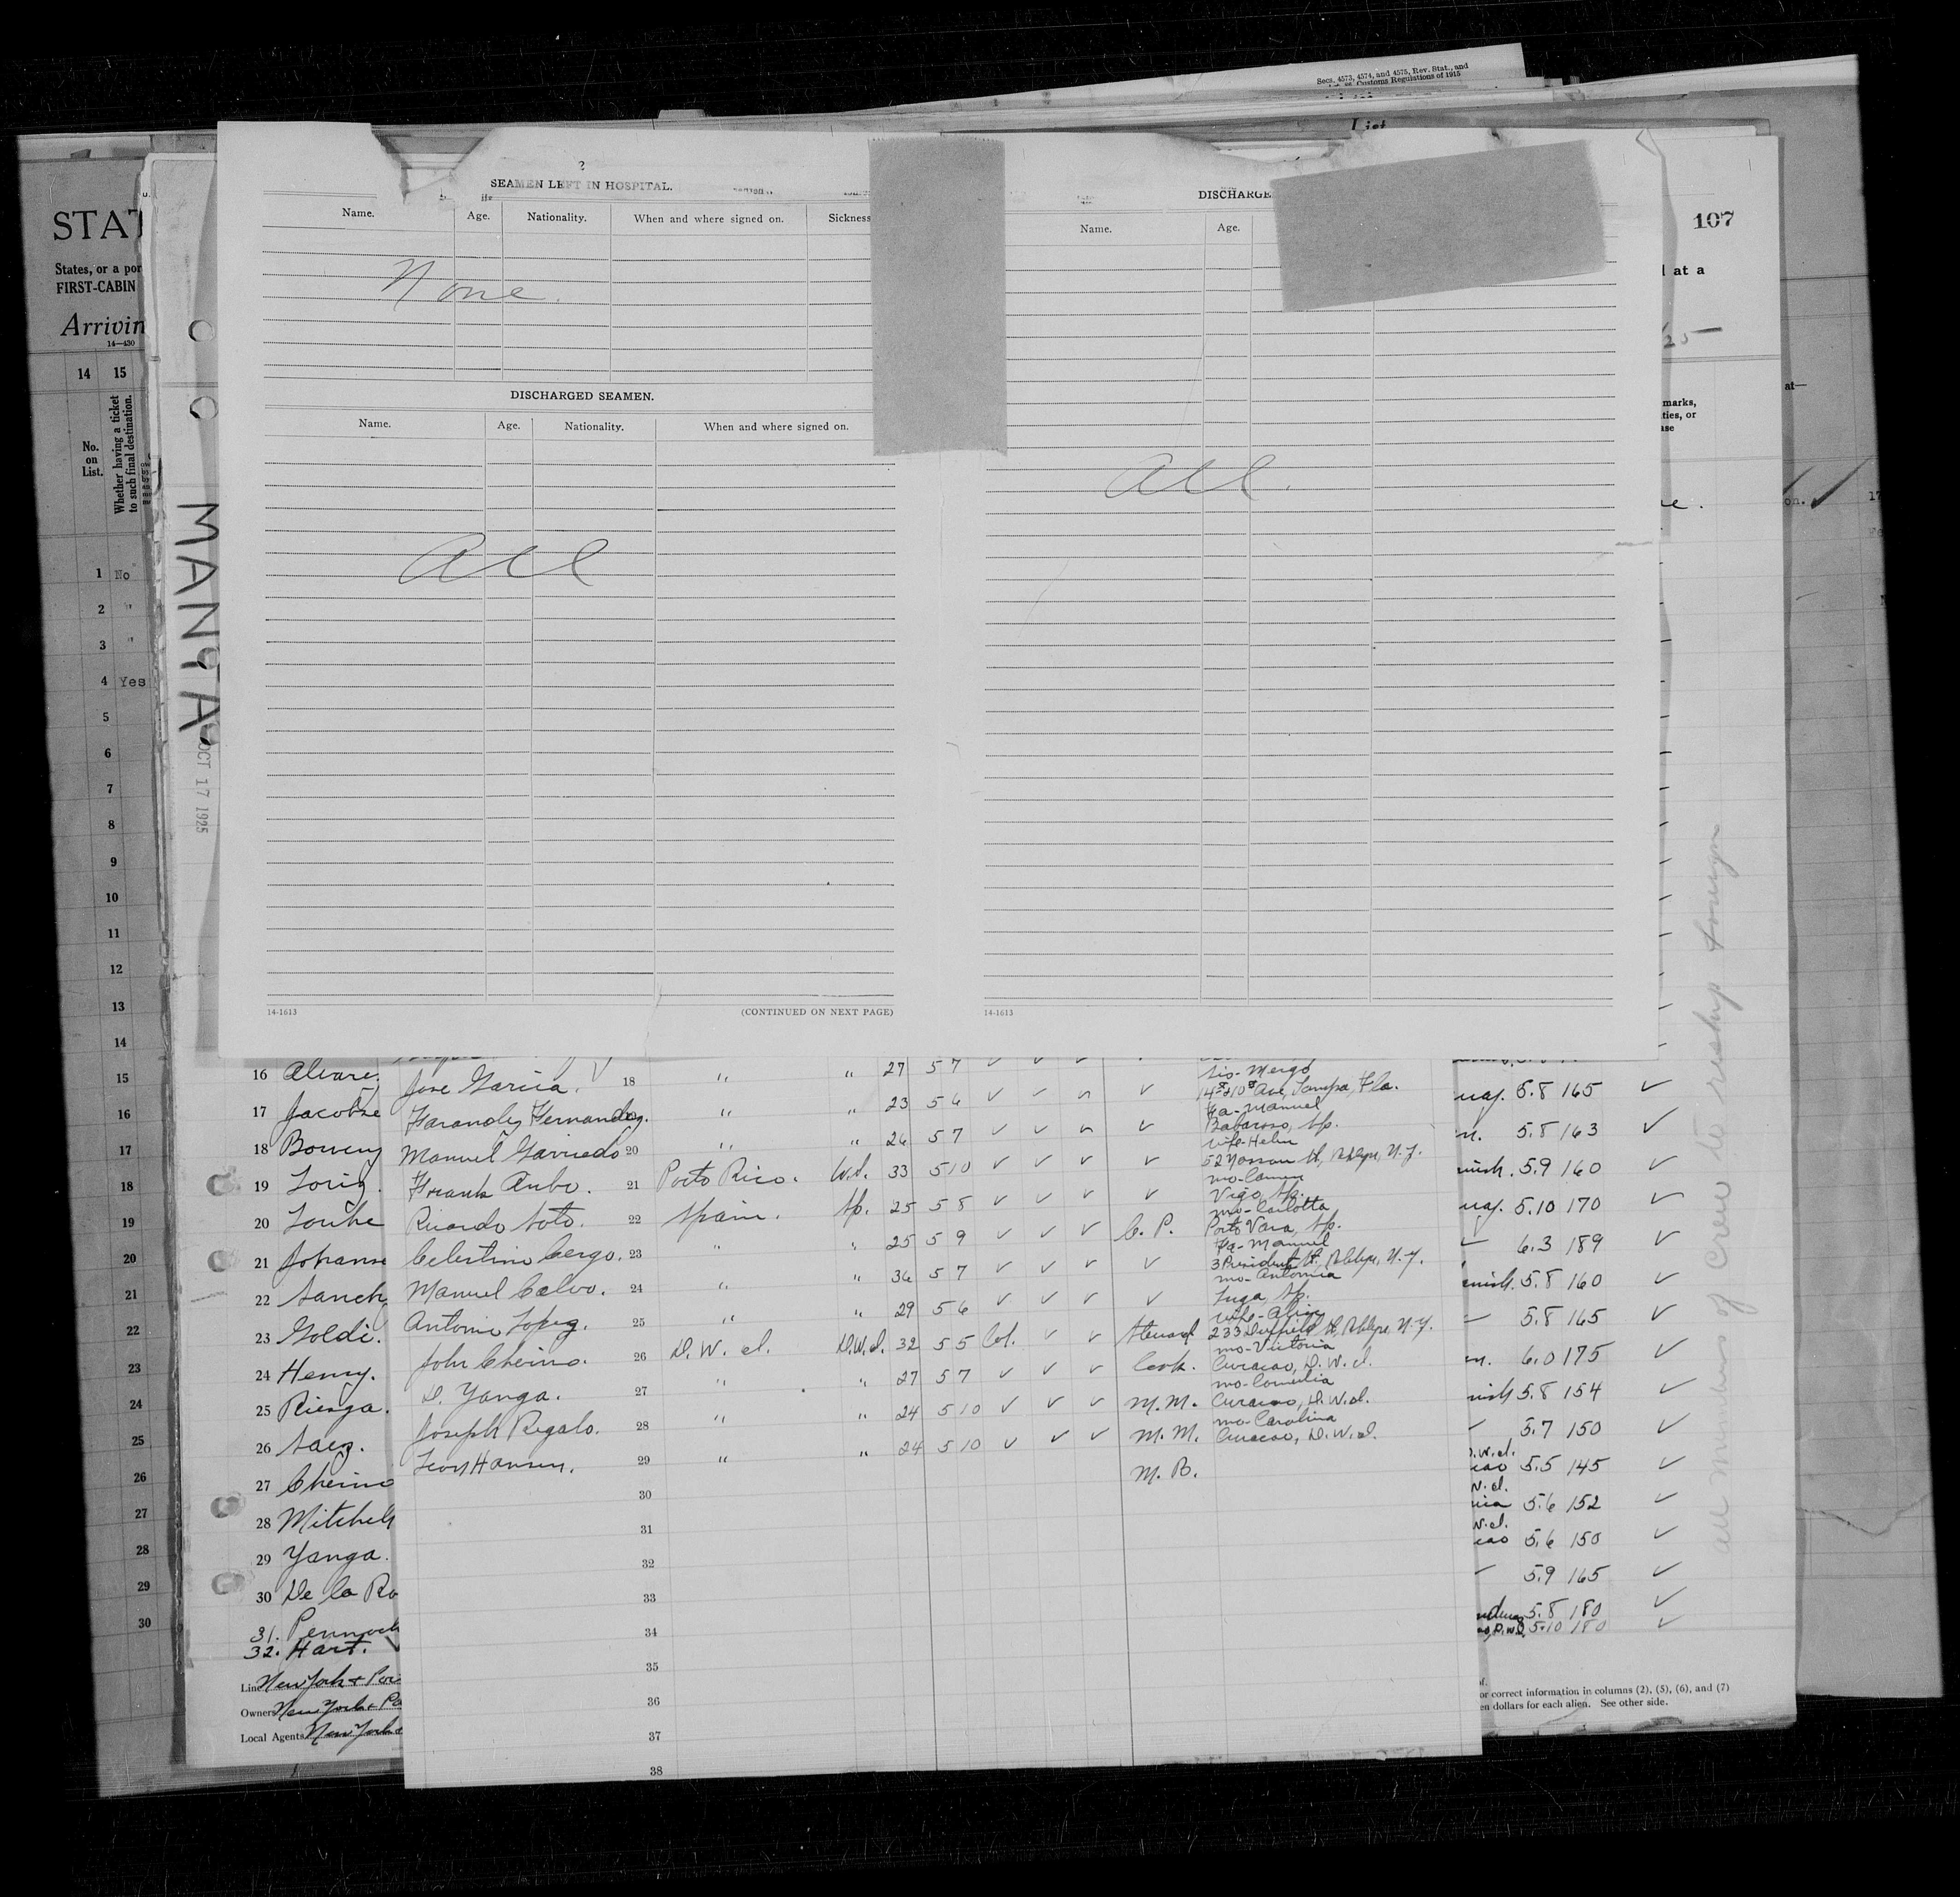 Secs. 4573, 4574, and 4575, Rev. Stat., and
Customs Regulations of 1915
List
107
STAT
States, or a por
FIRST-CABIN
Arrivin
14-430
14 15
No. on List.
Whether having a ticket to such final destination.
1 No
2 "
3 "
4 Yes
5
6
7
8
9
10
11
12
13
14
15
16
17
18
19
20
21
22
23
24
25
26
27
28
29
30
MANTA
OCT 17 1925
2
SEAMEN LEFT IN HOSPITAL.
Name. Age. Nationality. When and where signed on. Sickness
None.
DISCHARGED SEAMEN.
Name. Age. Nationality. When and where signed on.
all
14-1613 (CONTINUED ON NEXT PAGE)
DISCHARGE
Name. Age.
all.
14-1613
d at a
25
marks,
ties, or
ase
at—
on.
all members of crew to reship foreign
16 Alvare
17 Jacobse
18 Bowen
19 Lorig.
20 Louhe
21 Johanse
22 Sanch
23 Goldi.
24 Henry.
25 Riesga.
26 Saez.
27 Cheino
28 Mitchell
29 Yanga.
30 De la Ro
31. Pennock
32. Hart.
Line New York & Por
Owners New York & Po
Local Agents New York &
27 5 7
Jose Garcia. 18 " " 23 5 6
14th & 10th Ave, Tampa, Fla.
Fa-Manuel
Farandez Fernandez. " " 26 5 7
Wife-Helen
Manuel Garriedo 20 " "
Frank Aubo. 21 Porto Rico. W.I. 33 5 10
Vigo, Sp.
mo-Carlotta
Ricardo Soto. 22 Spain. Sp. 25 5 8
Fa-Manuel
Celestino Cergo. 23 " " 25 5 9 C. P.
3 President St, Bklyn, N.Y.
mo-Antonia
Manuel Calvo. 24 " " 36 5 7
Wife-Alice
Antonio Lopez. 25 " " 29 5 6
mo-Victoria
John Cheino. 26 D. W. I. D.W.I. 32 5 5 Col. Steward
Curacao, D.W.I.
mo-Cornelia
D. Yanga. 27 " " 27 5 7 Cook.
Curacao, D.W.I.
mo-Carolina
Joseph Regalo. 28 " " 24 5 10 M.M.
Curacao, D.W.I.
Leon Hansen. 29 " " 24 5 10 M.M.
M.B.
30
31
32
33
34
35
36
37
38
uay. 5.8 165
n. 5.8 163
nish. 5.9 160
uay. 5.10 170
6.3 189
anish. 5.8 160
5.8 165
n. 6.0 175
nish 5.8 154
5.7 150
D.W.I.
cao 5.5 145
W.I.
5.6 152
W.I.
cao 5.6 150
5.9 165
5.8 180
5.10 180
of.
or correct information in columns (2), (5), (6), and (7)
en dollars for each alien. See other side.